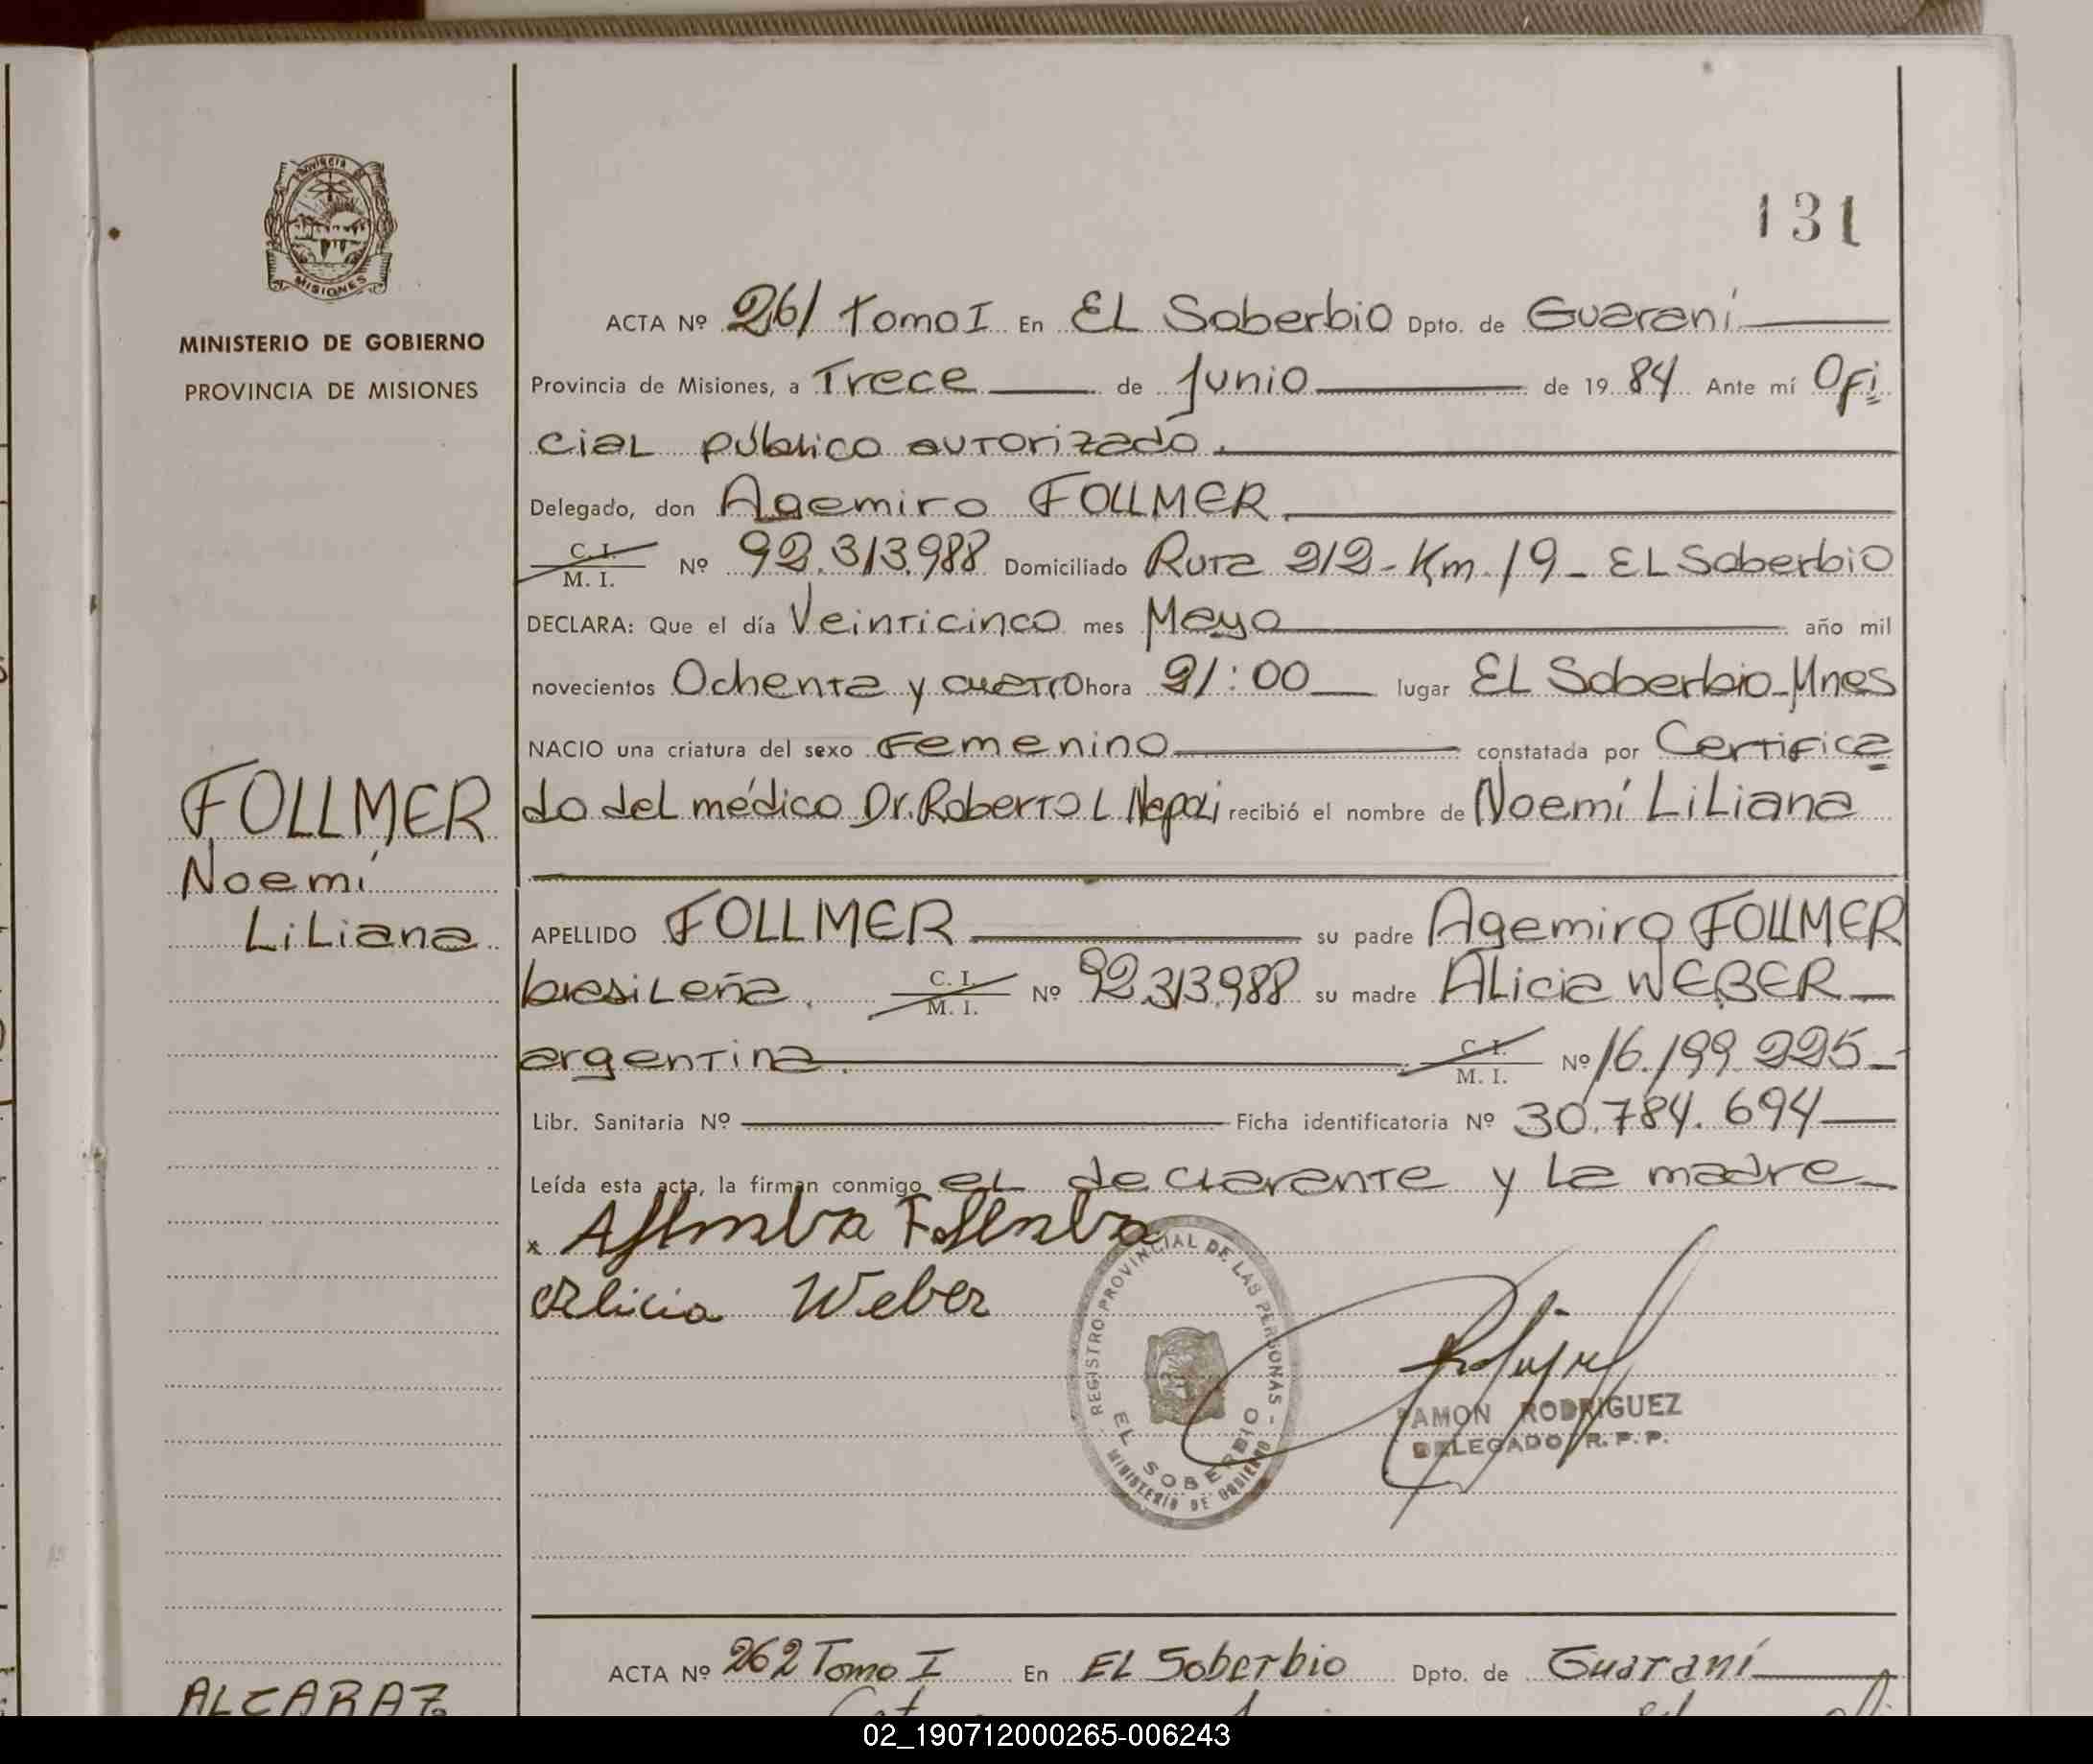 131
Provincia de
MISIONES
MINISTERIO DE GOBIERNO
PROVINCIA DE MISIONES
ACTA Nº 261 Tomo I En EL Soberbio Dpto. de Guaraní
Provincia de Misiones, a Trece de Junio de 19 84 Ante mí Ofi
cial público autorizado.
Delegado, don Agemiro FOLLMER
C. I. M. I. Nº 92.313.988 Domiciliado Ruta 212 - Km. 19 - EL Soberbio
DECLARA: Que el día Veinticinco mes Mayo año mil
novecientos Ochenta y cuatro hora 21:00 lugar EL Soberbio - Mnes
NACIO una criatura del sexo Femenino constatada por Certifica
do del médico Dr. Roberto L recibió el nombre de Noemí Liliana
FOLLMER
Noemí
Liliana
APELLIDO FOLLMER su padre Agemiro FOLLMER
brasileña. C. I. M. I. Nº 92.313.988 su madre Alicia WEBER
argentina. C. I. M. I. Nº 16.199.225
Libr. Sanitaria Nº Ficha identificatoria Nº 30.784.694
Leída esta acta, la firman conmigo el declarante y la madre
x
Alicia Weber
REGISTRO PROVINCIAL DE LAS PERSONAS - MINISTERIO DE GOBIERNO
EL SOBERBIO
RAMON RODRIGUEZ
DELEGADO R. P. P.
ACTA Nº 262 Tomo I En EL Soberbio Dpto. de Guaraní
ALCARAZ
02_190712000265-006243